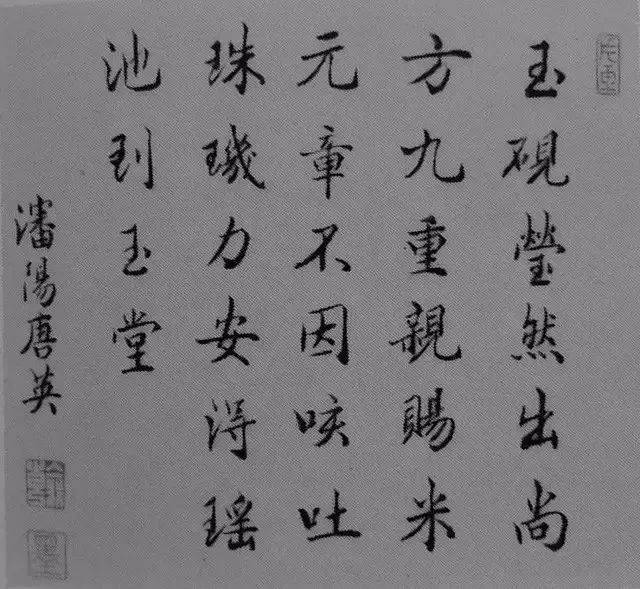 玉硯瑩然出尚
方九重親賜米
元章不因咳吐
珠璣力安得瑶
池到玉堂
瀋陽唐英